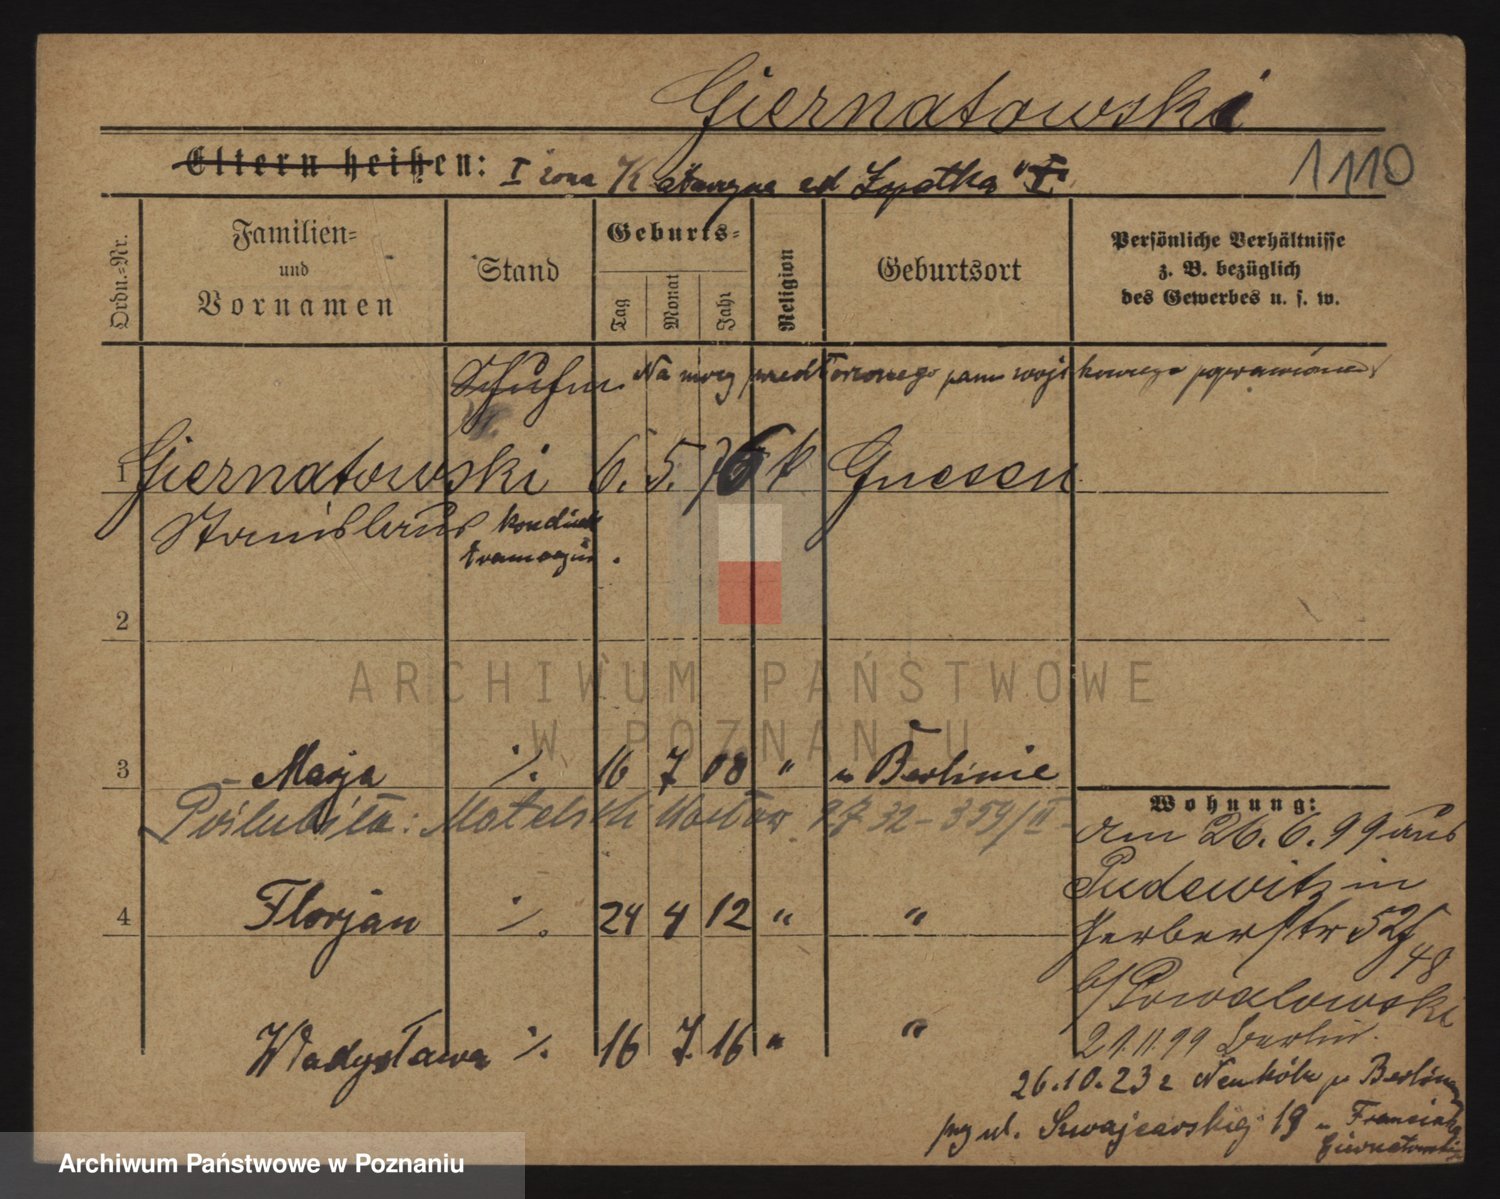 Giernatowski
1110
Eltern heißen: I żona Katarzyna od Łopatka "I"
Ordn.-Nr.
Familien-
und
Vornamen
Stand
Geburts-
Tag
Monat
Jahr
Religion
Geburtsort
Persönliche Verhältnisse
z. B. bezüglich
des Gewerbes u. s. w.
Schuhm. Na mocy przedłożonego pasu wojskowego
1 Giernatowski 6. 5. 76 k Gnesen
Stanislaus
tramwajów.
2
ARCHIWUM PAŃSTWOWE
W POZNANIU
3 Marja ./. 16 7 08 " w Berlinie
Poślubiła: Matelski 27 32 - 359/II
4 Florjan ./. 24 4 12 " "
Władysława ./. 16 7. 16 " "
Wohnung:
Am 26.6.99 aus
Pudewitz in
Gerberstr 52
48
b/ Powalowski
21.11.99 Berlin.
26.10.23 z Neuköln p. Berlinem
przy ul. Szwajcarskiej 19 u Franciszka
Giernatowski
Archiwum Państwowe w Poznaniu